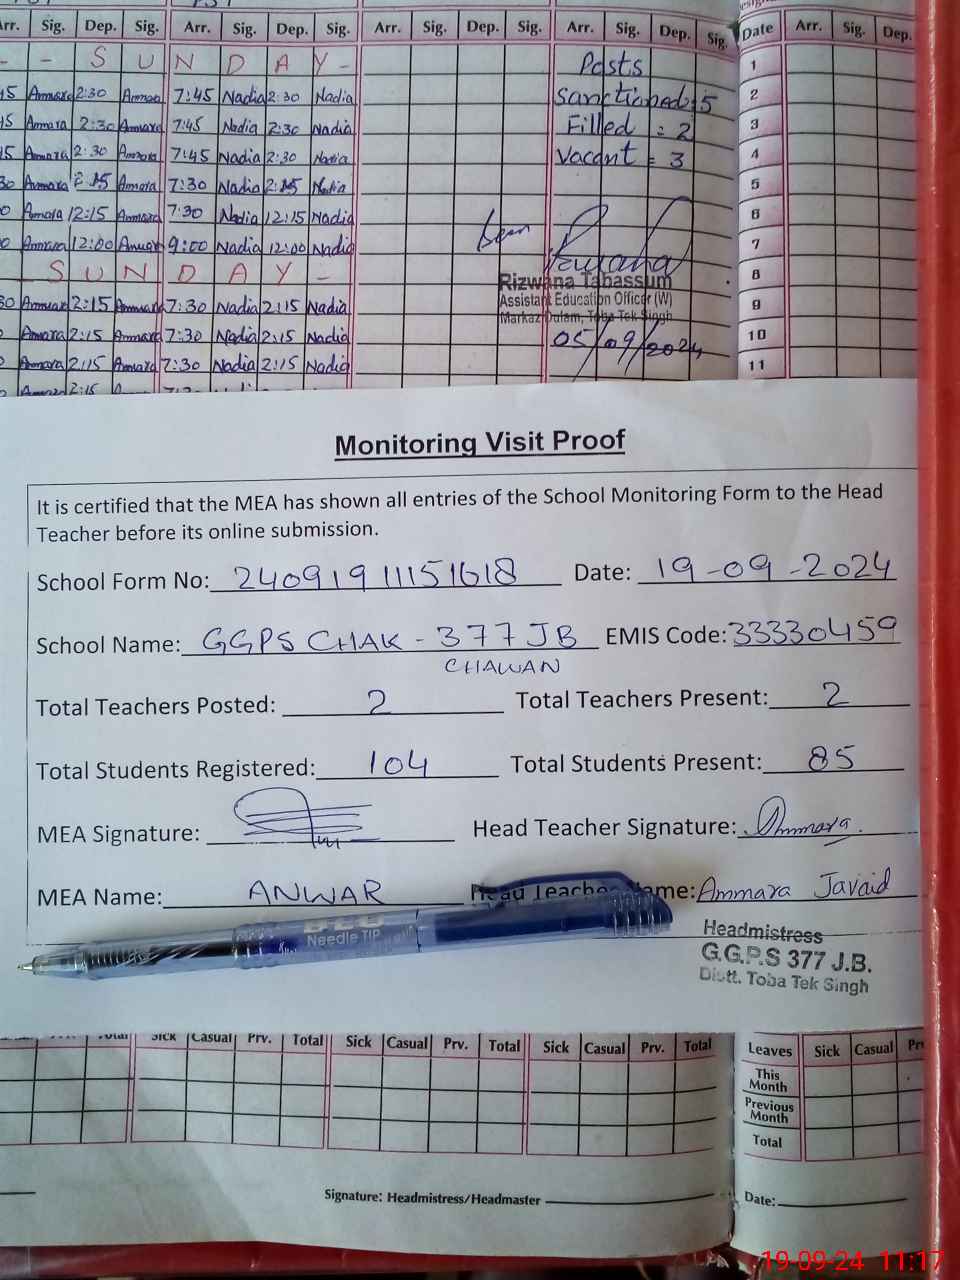 Arr. Sig. Dep. Sig. Arr. Sig. Dep. Sig. Arr. Sig. Dep. Sig. Arr. Sig. Dep. Sig. Date Arr. Sig. Dep.
- - S U N D A Y - Posts 1
Ammara 2:30 Ammara 7:45 Nadia 2:30 Nadia Sanctioned: 5 2
Ammara 2:30 Ammara 7:45 Nadia 2:30 Nadia Filled = 2 3
Ammara 2:30 Ammara 7:45 Nadia 2:30 Nadia Vacant = 3 4
Ammara 2:15 Ammara 7:30 Nadia 2:15 Nadia 5
Ammara 12:15 Ammara 7:30 Nadia 12:15 Nadia 6
Ammara 12:00 Ammara 9:00 Nadia 12:00 Nadia Seen 7
S U N D A Y - Rizwana 8
Rizwana Tabassum
Assistant Education Officer (W)
Markaz Dulam, Toba Tek Singh
Ammara 2:15 Ammara 7:30 Nadia 2:15 Nadia 9
Ammara 2:15 Ammara 7:30 Nadia 2:15 Nadia 05/09/2024 10
Ammara 2:15 Ammara 7:30 Nadia 2:15 Nadia 11
2:15
Monitoring Visit Proof
It is certified that the MEA has shown all entries of the School Monitoring Form to the Head
Teacher before its online submission.
School Form No: 24091911151618 Date: 19-09-2024
School Name: GGPS CHAK - 377 JB EMIS Code: 33330459
CHAWAN
Total Teachers Posted: 2 Total Teachers Present: 2
Total Students Registered: 104 Total Students Present: 85
MEA Signature: Head Teacher Signature: Ammara
MEA Name: ANWAR Head Teacher Name: Ammara Javaid
Needle TIP
Headmistress
G.G.P.S 377 J.B.
Distt. Toba Tek Singh
Total Sick Casual Prv. Total Sick Casual Prv. Total Sick Casual Prv. Total Leaves Sick Casual
This
Month
Previous
Month
Total
Signature: Headmistress/Headmaster Date:
19-09-24 11:17